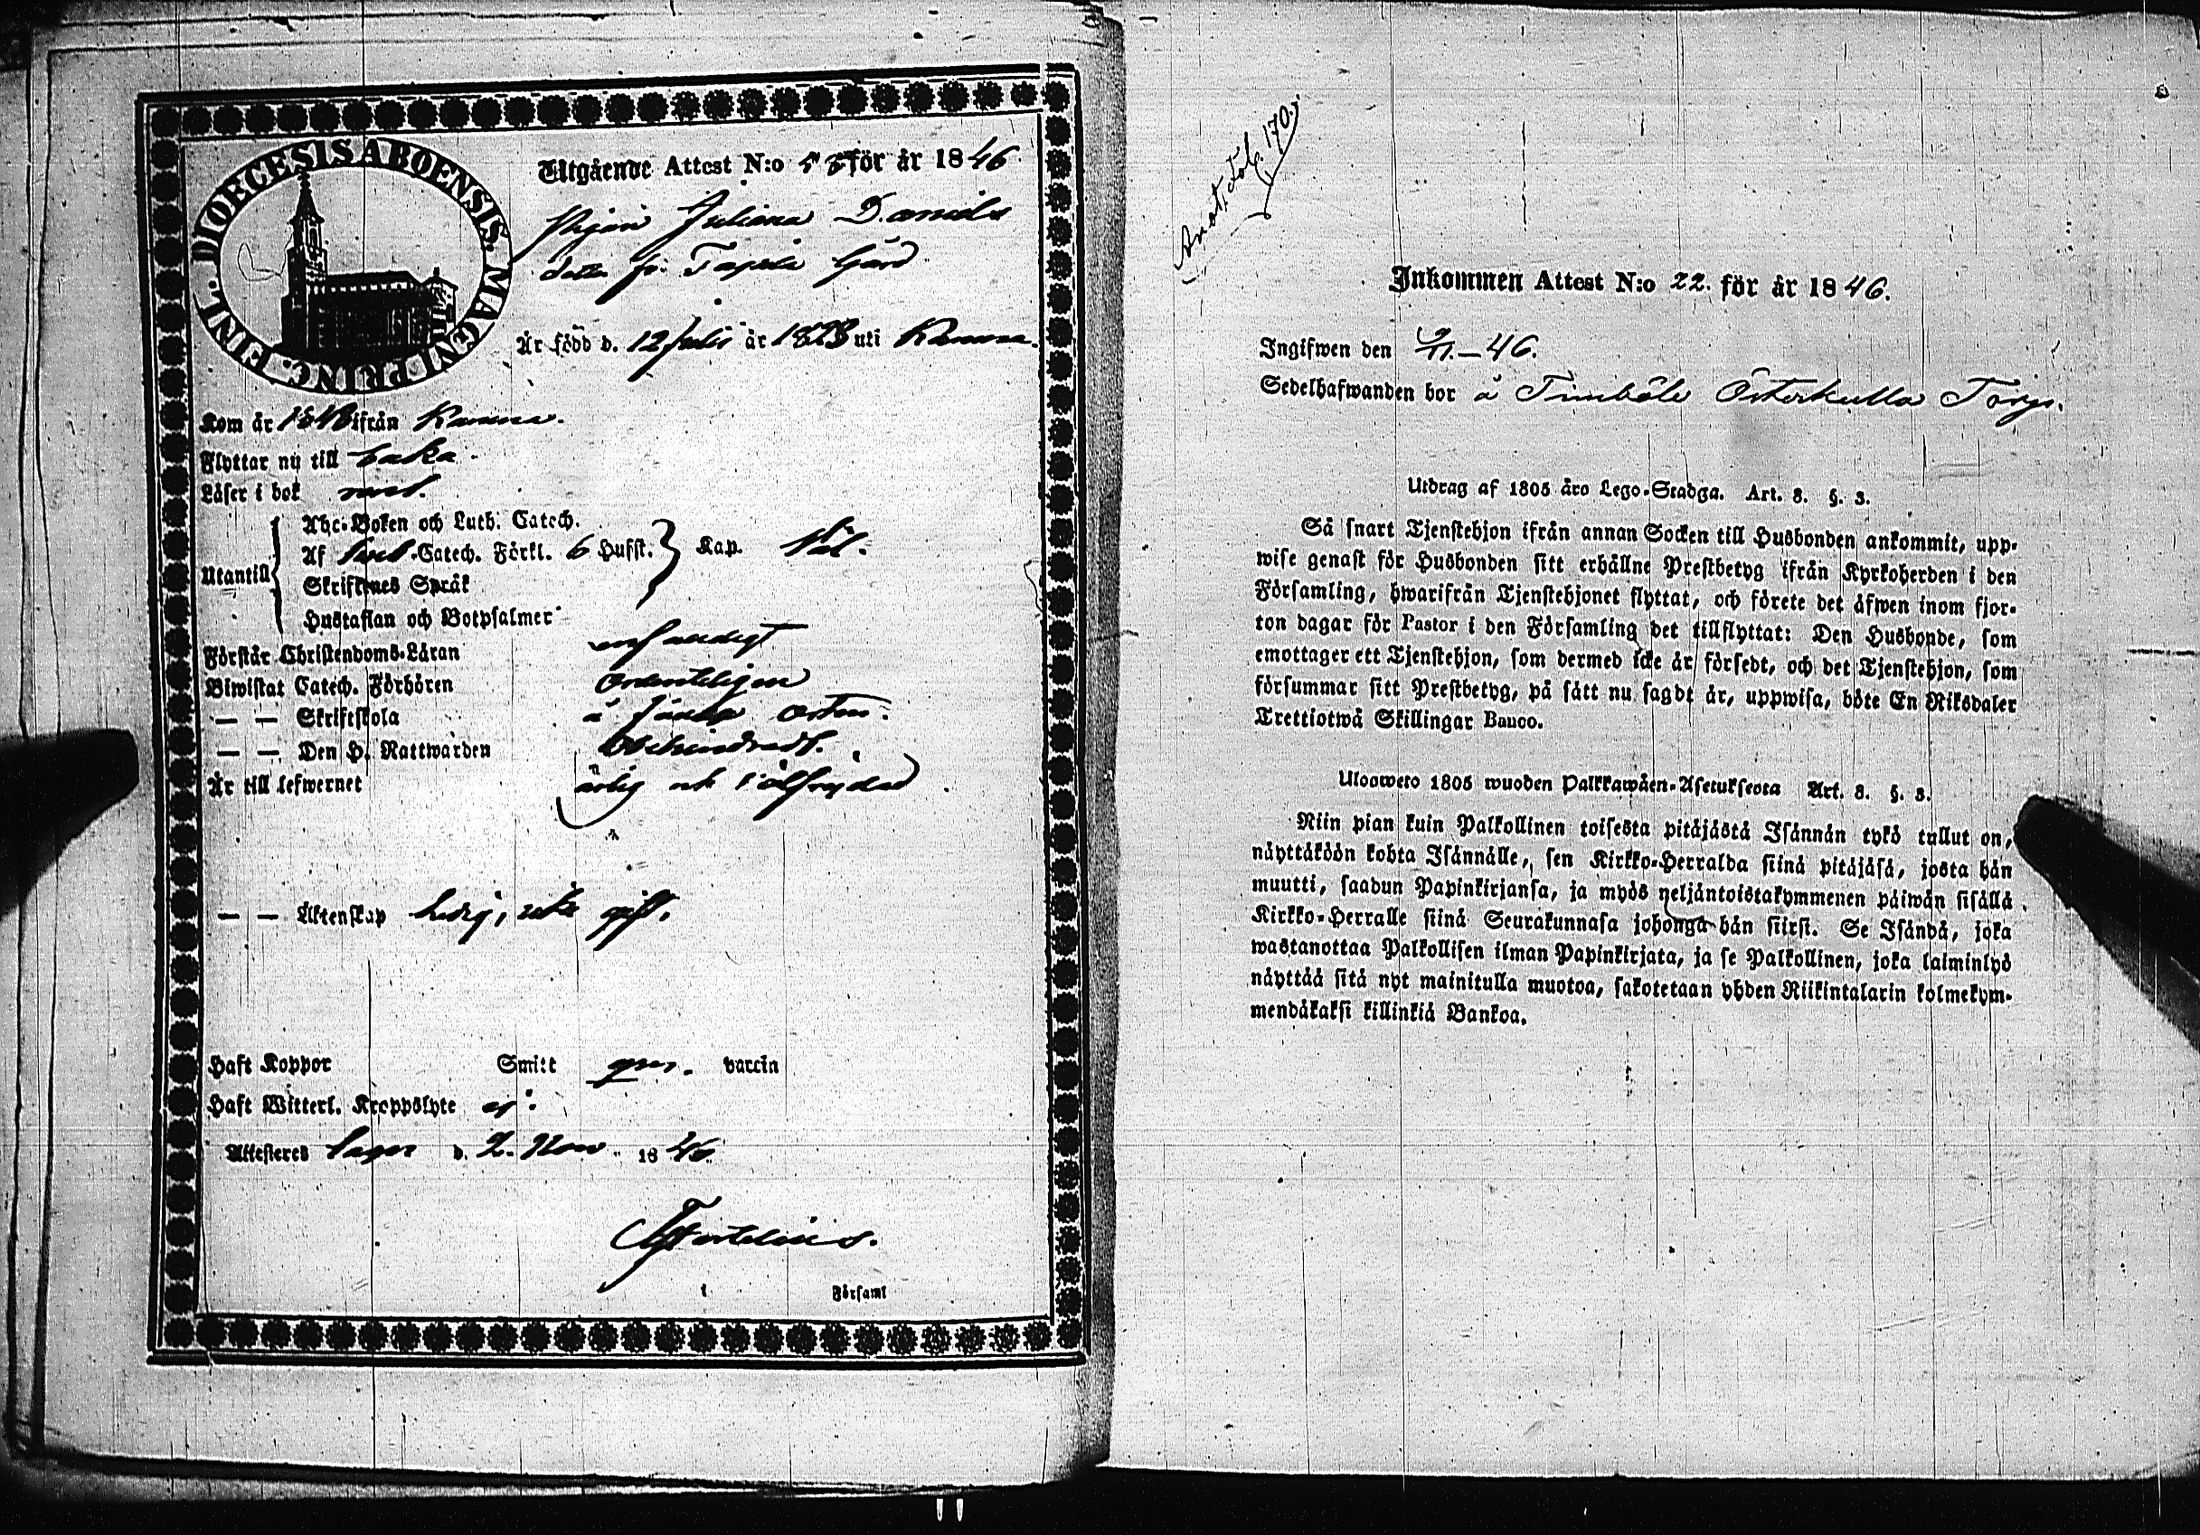 DIOECESIS ABOENSIS. MAGNI PRINC. FINL.
Utgående Attest N:o för år 1846
Pigan Juliana Daniels
dotter fr. Gård
Är född d. 12 Julii år 1823 uti Kamma.
Kom år ifrån Kamma.
Flyttar nu till baka.
Läser i bok
Utantill
Abc-Boken och Luth. Catech.
Af Catech. Förkl. 6 Husst. Kap. Väl.
Skriftenes Språk
Hustaflan och Botpsalmer
Förstår Christendoms-Läran
Biwistat Catech. Förhören ordenteligen
— — Skriftskola å orten.
— — Den H. Nattwarden obehindradt.
Är till lefwernet ärlig och
— — Äktenskap ledig, icke gift.
Haft Koppor Smitt gm. vaccin
Haft Witterl. Kroppslyte ej.
Attesteras Sagu d. 2. Nov. 1846.
Församl
Anot. Fol. 170.
Inkommen Attest N:o 22. för år 1846.
Ingifwen den 9/11.—46.
Sedelhafwanden bor å Timböle Österkulla Torp.
Utdrag af 1805 års Lego-Stadga. Art. 8. §. 3.
Så snart Tjenstehjon ifrån annan Socken till Husbonden ankommit, upp-
wise genast för Husbonden sitt erhållne Prestbetyg ifrån Kyrkoherden i den
Församling, hwarifrån Tjenstehjonet flyttat, och förete det äfwen inom fjor-
ton dagar för Pastor i den Församling det tillflyttat: Den Husbonde, som
emottager ett Tjenstehjon, som dermed icke är försedt, och det Tjenstehjon, som
försummar sitt Prestbetyg, på sätt nu sagdt är, uppwisa, böte En Riksdaler
Trettiotwå Skillingar Banco.
Ulosweto 1805 wuoden Palkkawäen-Asetuksesta Art. 8. §. 3.
Niin pian kuin Palkollinen toisesta pitäjästä Isännän tykö tullut on,
näyttäköön kohta Isännälle, sen Kirkko-Herralda siinä pitäjäsä, josta hän
muutti, saadun Papinkirjansa, ja myös neljäntoistakymmenen päiwän sisällä
Kirkko-Herralle siinä Seurakunnasa johonga hän siirsi. Se Isändä, joka
wastanottaa Palkollisen ilman Papinkirjata, ja se Palkollinen, joka laiminlyö
näyttää sitä nyt mainitulla muotoa, sakotetaan yhden Riikintalarin kolmekym-
mendäkaksi killinkiä Bankoa.